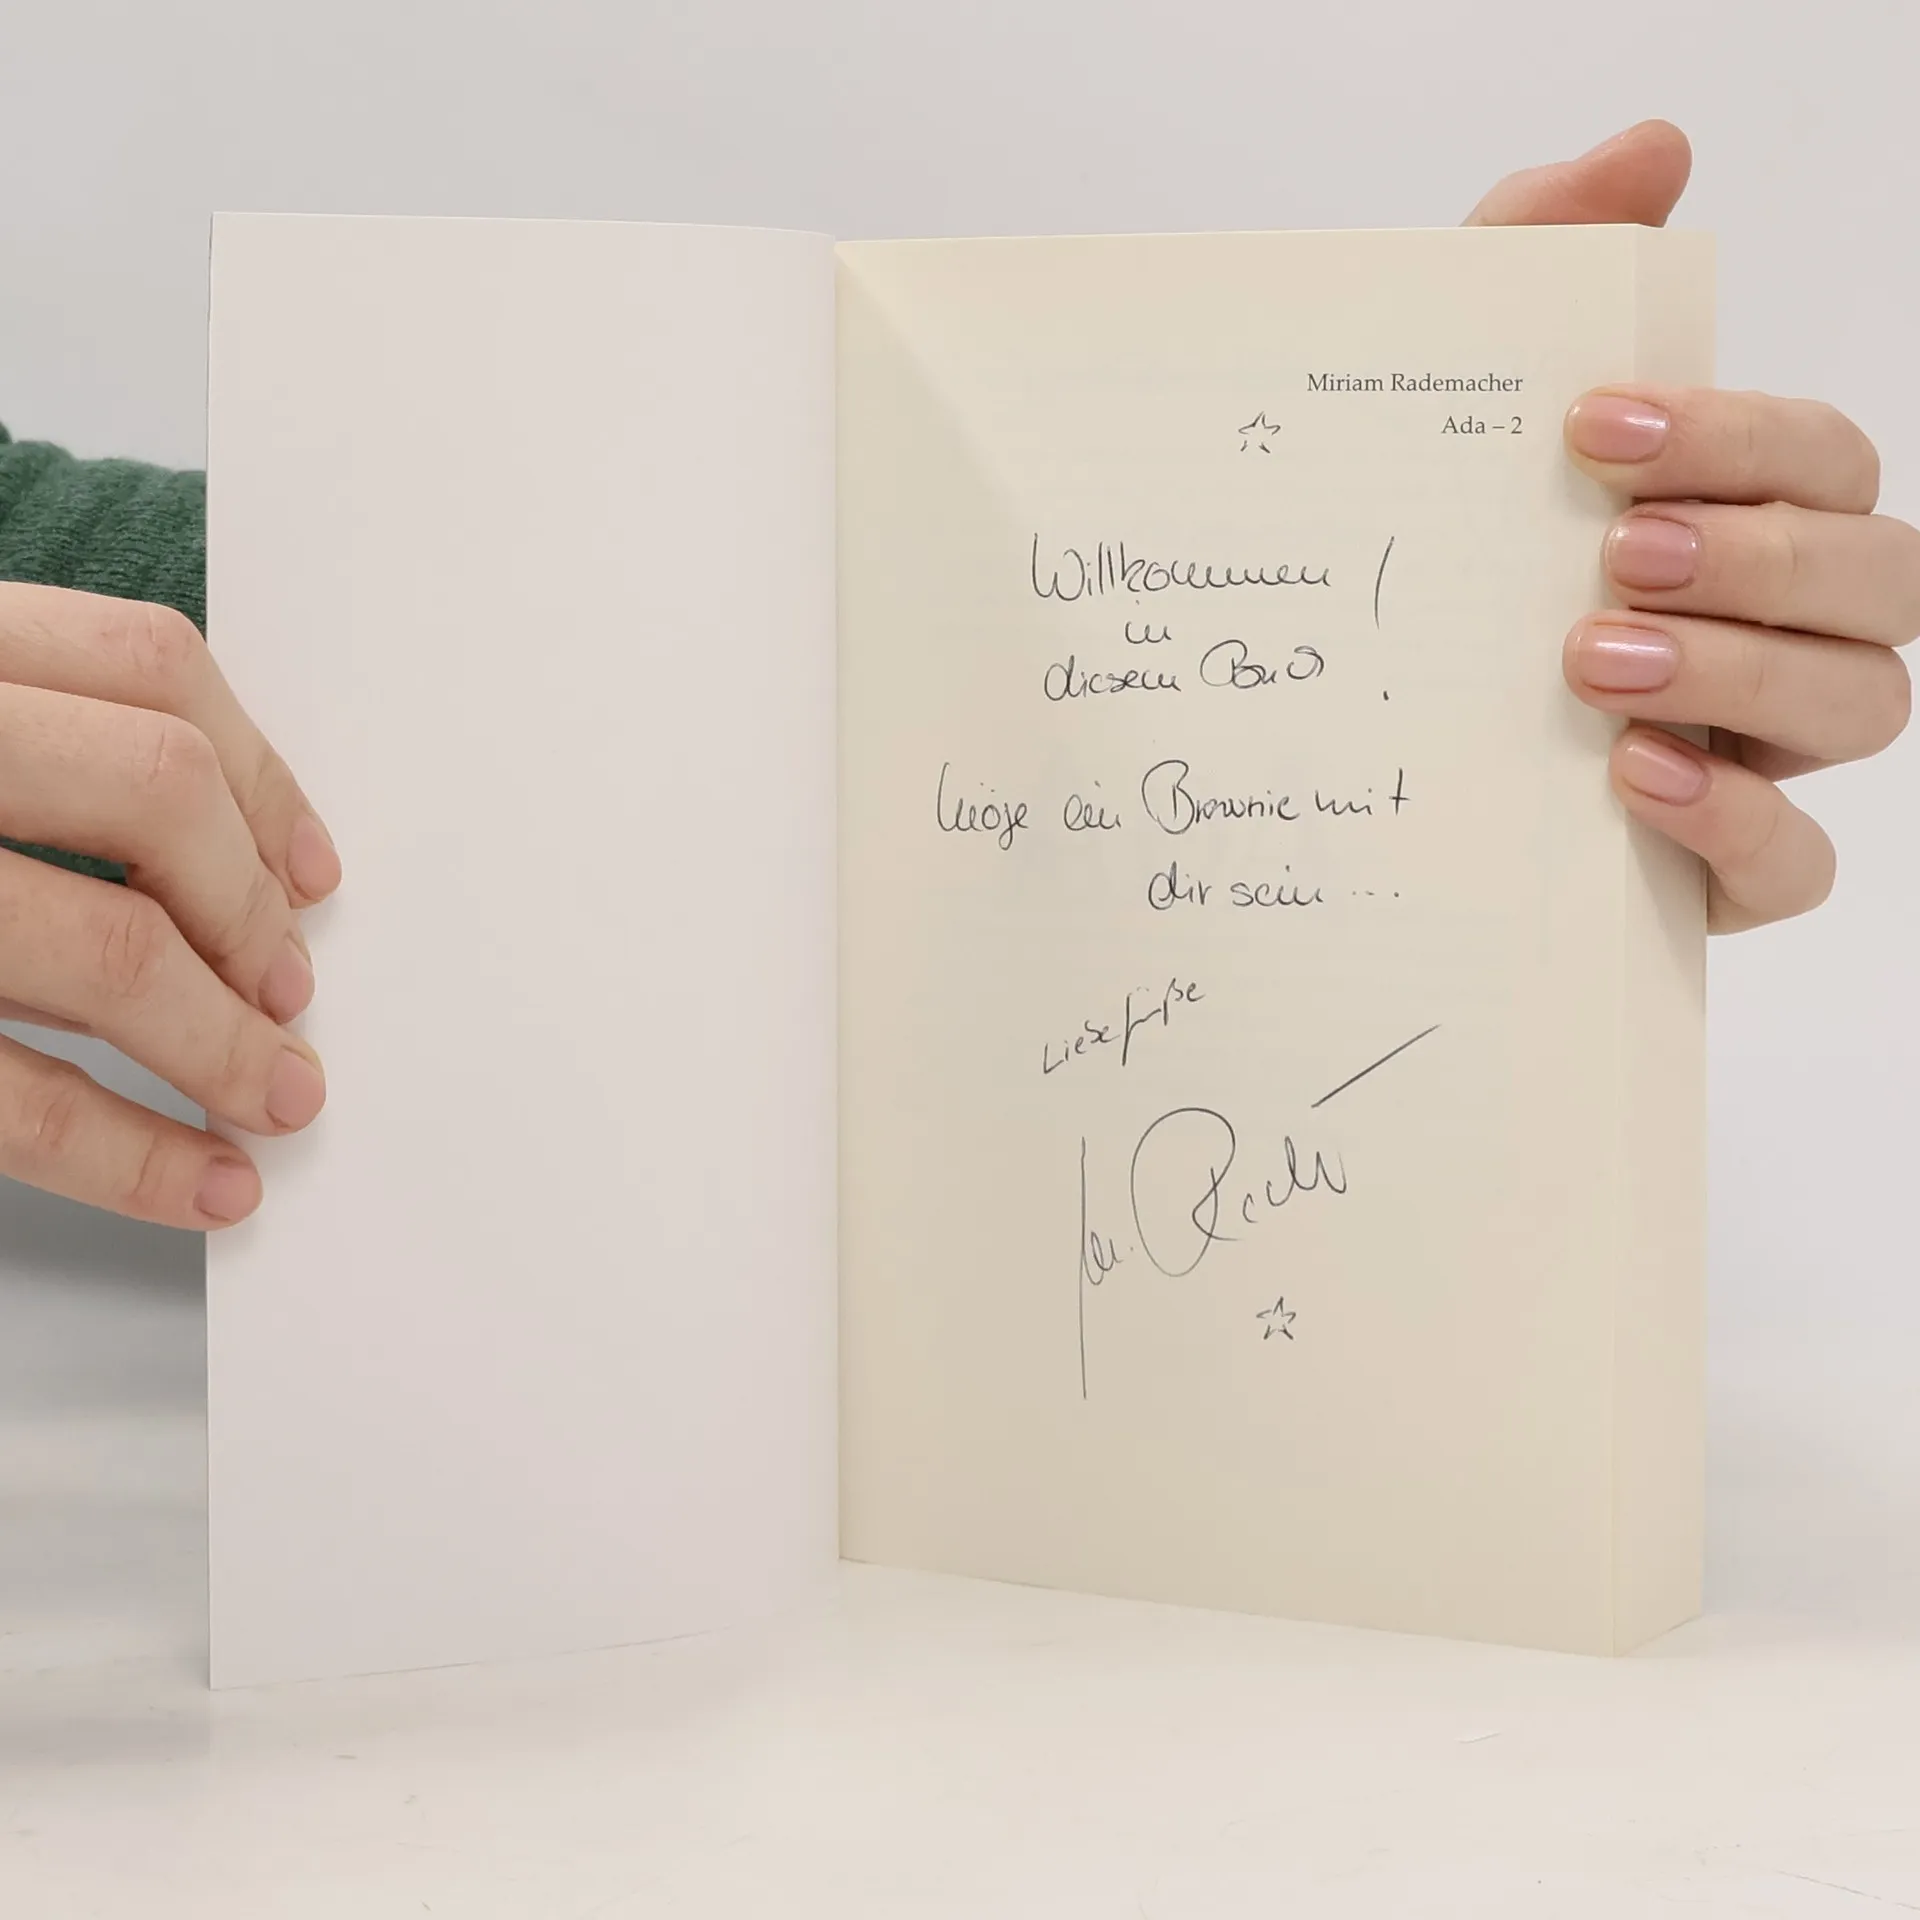 Miriam Rademacher
Ada – 2
Willkommen !
in
diesem Band
Möge ein Brownie mit
dir sein ...
Liebe Grüße